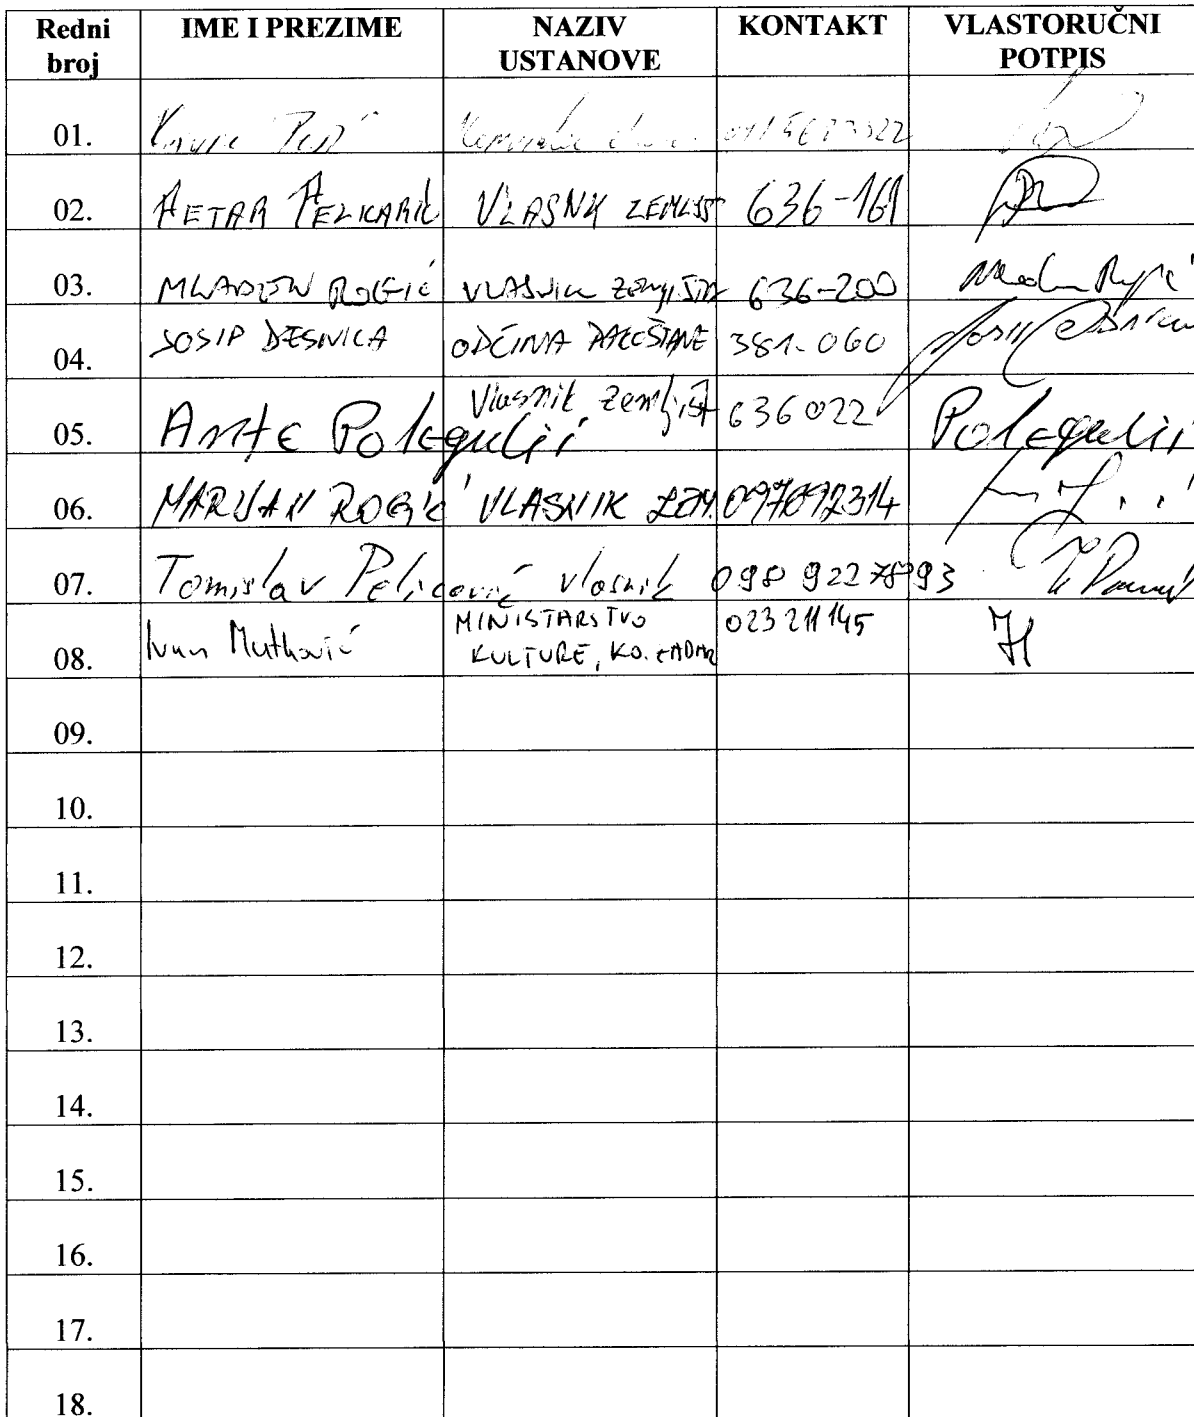 Redni broj IME I PREZIME NAZIV USTANOVE KONTAKT VLASTORUČNI POTPIS
01.
02. PETAR PELICARIĆ VLASNIK ZEMLJIŠT 636-161
03. MLADEN ROGIĆ VLASNIK ZEMLJIŠTA 636-200
04. JOSIP DESNICA OPĆINA PAKOŠTANE 381-060
05. Ante Polegulić Vlasnik zemljišt 636022 Polegulić
06. MARIJAN ROGIĆ VLASNIK ZEM. 097092314
07. Tomislav Pelicarić vlasnik
08. Ivan Mutković MINISTARSTVO KULTURE, K.O. ZADAR 023 211145
09.
10.
11.
12.
13.
14.
15.
16.
17.
18.